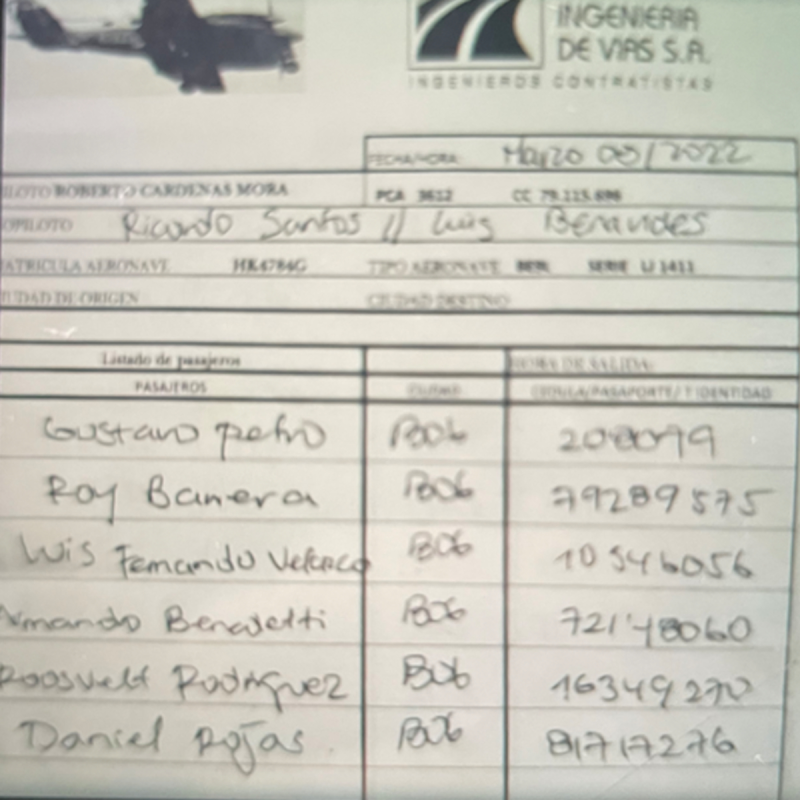 INGENIERIA
DE VIAS S.A.
INGENIEROS CONTRATISTAS
FECHA/HORA Marzo /2022
ILOTO ROBERTO CARDENAS MORA PCA 3612 CC 79.123.696
OPILOTO Ricardo Santos // Luis Benavides
ATRICULA AERONAVE HK4784G TIPO AERONAVE SERIE LJ 1411
IUDAD DE ORIGEN CIUDAD DESTINO
Listado de pasajeros HORA DE SALIDA
PASAJEROS CEDULA/PASAPORTE/T IDENTIDAD
Gustavo petro BOG 208079
Roy Barrera BOG 79289575
Luis Fernando Velasco BOG 10546056
Armando Benedetti BOG 72148060
Roosvelt Rodriguez BOG 16349270
Daniel Rojas BOG 81717276